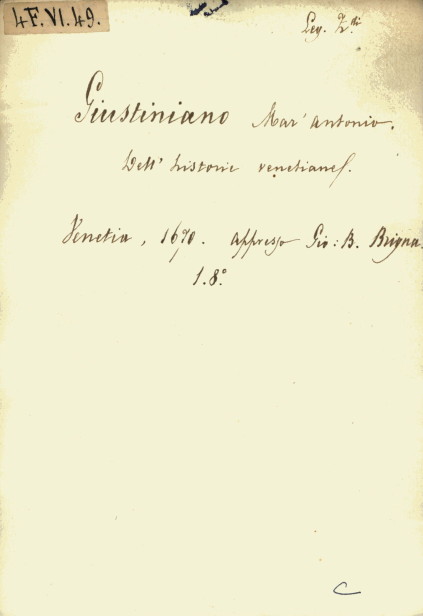 4F.VI.49.
Leg. Z.ti
Giustiniano Mar' Antonio.
Dell' historie venetiane.
Venetia, 1670. appresso Gio: B. Brigna.
1.8.°
C